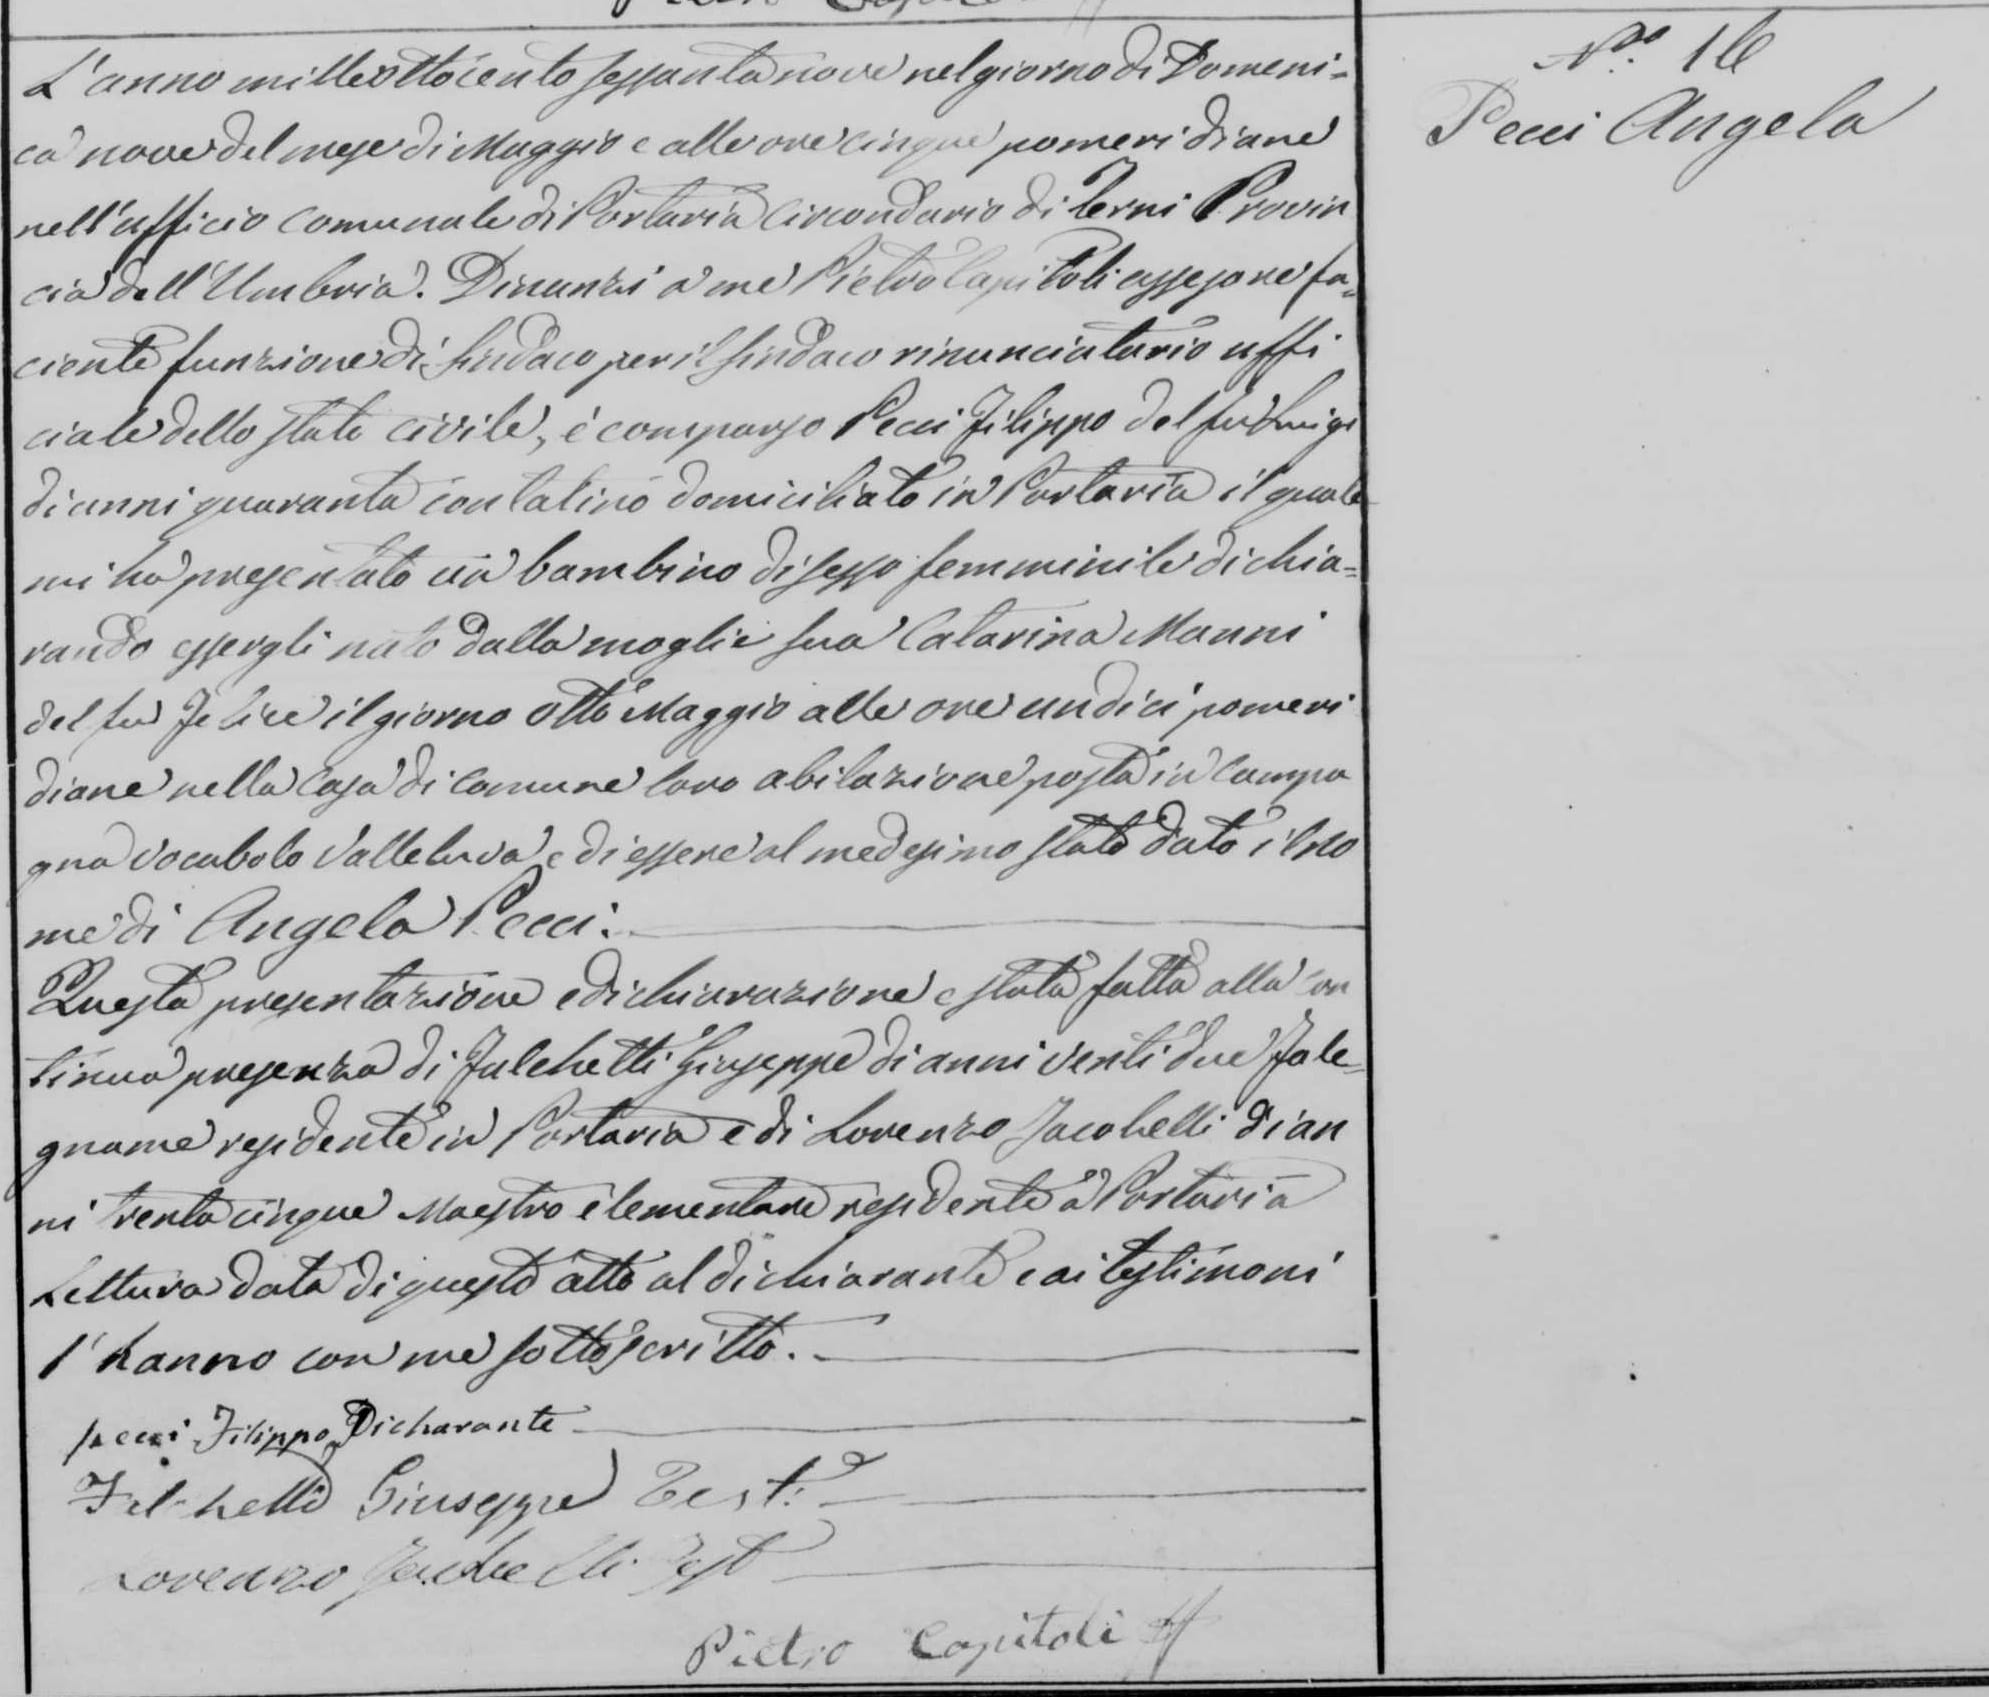 N.º 16
Pecci Angela
L'anno milleottocento sessantanove nel giorno di Domeni=
ca nove del mese di Maggio e alle ore cinque pomeridiane
nell'ufficio comunale di Portaria Circondario di Terni Provin
cia dell'Umbria. Dinanzi a me Pietro Capitoli assessore fa=
ciente funzione di Sindaco per il Sindaco rinunciatario uffi
ciale dello stato civile, è comparso Pecci Filippo del fu Luigi
di anni quaranta contadino domiciliato in Portaria il quale
mi ha presentato un bambino di sesso femminile dichia=
rando essergli nato dalla moglie sua Catarina Manni
del fu Felice il giorno otto Maggio alle ore undici pomeri
diane nella casa di comune loro abitazione posta in campa
gna vocabolo e di essere al medesimo stato dato il no
me di Angela Pecci.
Questa presentazione e dichiarazione e stata fatta alla con
tinua presenza di Falchetti Giuseppe di anni venti due Fale=
gname residente in Portaria e di Lorenzo Jacobelli di an
ni trenta cinque Maestro elementare residente a Portaria
Lettura data di questo atto al dichiarante e ai testimoni
l'hanno con me sottoscritto.
pecci Filippo Dicharante
Falchetti Giuseppe Test.e
Lorenzo Jacobelli Test
Pietro Capitoli ff